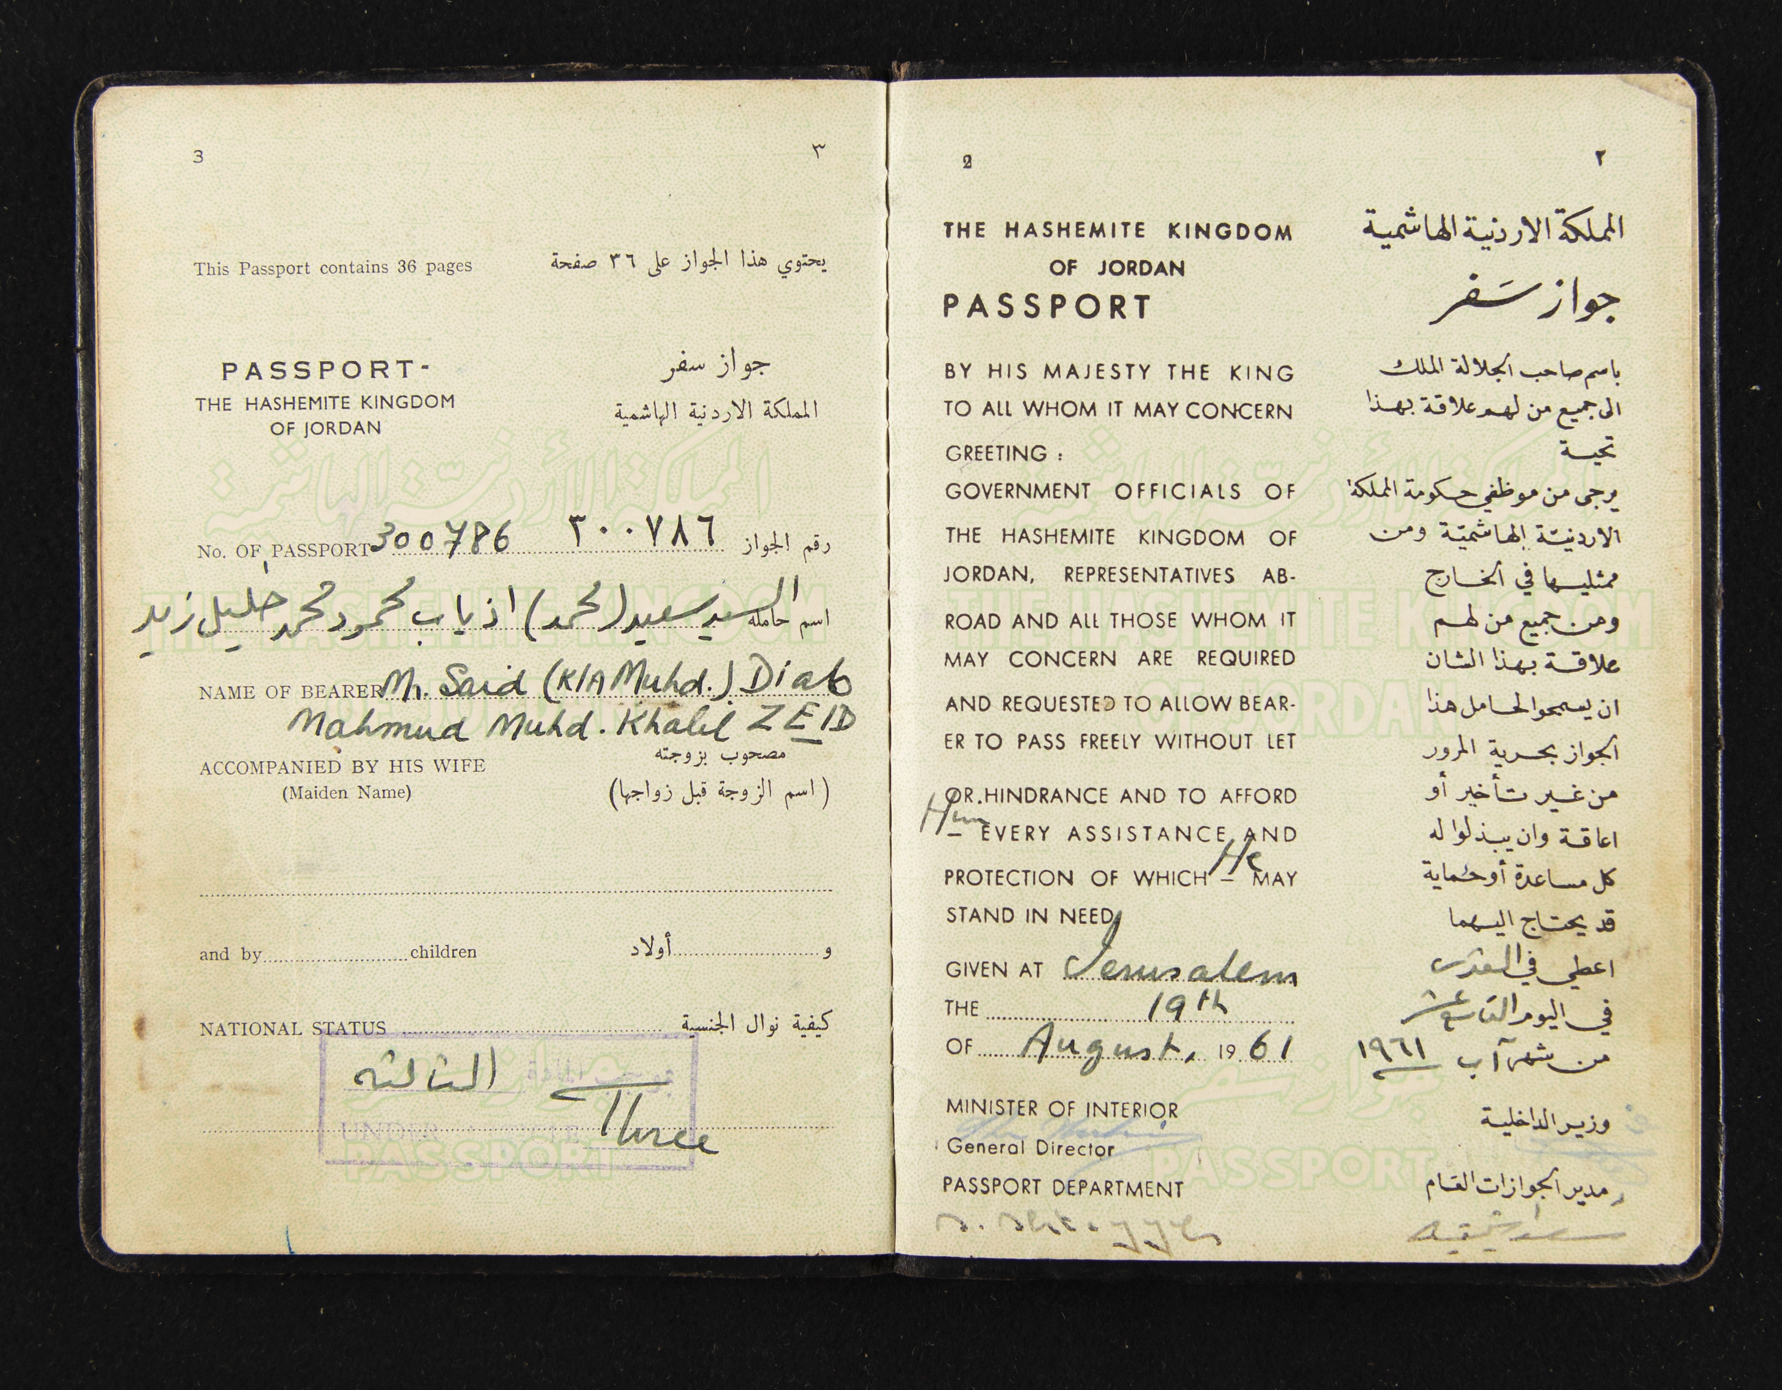 3 ٣
This Passport contains 36 pages يحتوي هذا الجواز على ٣٦ صفحة
PASSPORT- جواز سفر
THE HASHEMITE KINGDOM المملكة الاردنية الهاشمية
OF JORDAN
No. OF PASSPORT 300786 ٣٠٠٧٨٦ رقم الجواز
اسم حامله السيد سعيد (محمد) اذياب محمود محمد خليل زيد
NAME OF BEARER Mr. Said (K/A Muhd.) Diab
Mahmud Muhd. Khalil ZEID
ACCOMPANIED BY HIS WIFE مصحوب بزوجته
(Maiden Name) (اسم الزوجة قبل زواجها)
and by children و أولاد
NATIONAL STATUS كيفية نوال الجنسية
الثالثه
Three
UNDER
PASSPORT
2 ٢
THE HASHEMITE KINGDOM المملكة الاردنية الهاشمية
OF JORDAN
PASSPORT جواز سَفر
BY HIS MAJESTY THE KING باسم صاحب الجلالة الملك
TO ALL WHOM IT MAY CONCERN الى جميع من لهم علاقة بهذا
GREETING : تحية
GOVERNMENT OFFICIALS OF يرجى من موظفي حكومة المملكة
THE HASHEMITE KINGDOM OF الاردنيّة الهاشميّة ومن
JORDAN, REPRESENTATIVES AB- ممثليها في الخارج
ROAD AND ALL THOSE WHOM IT ومن جميع من لهم
MAY CONCERN ARE REQUIRED علاقة بهذا الشان
AND REQUESTED TO ALLOW BEAR- ان يسمحوا لحامل هذا
ER TO PASS FREELY WITHOUT LET الجواز بحرية المرور
OR HINDRANCE AND TO AFFORD من غير تأخير أو
Him EVERY ASSISTANCE AND اعاقة وان يبذلوا له
PROTECTION OF WHICH He MAY كل مساعدة أو حماية
STAND IN NEED قد يحتاج اليهما
GIVEN AT Jerusalem اعطي في القدس
THE 19th في اليوم التاسع عشر
OF August, 1961 من شهر آب ١٩٦١
MINISTER OF INTERIOR وزير الداخلية
General Director
PASSPORT DEPARTMENT مدير الجوازات العام